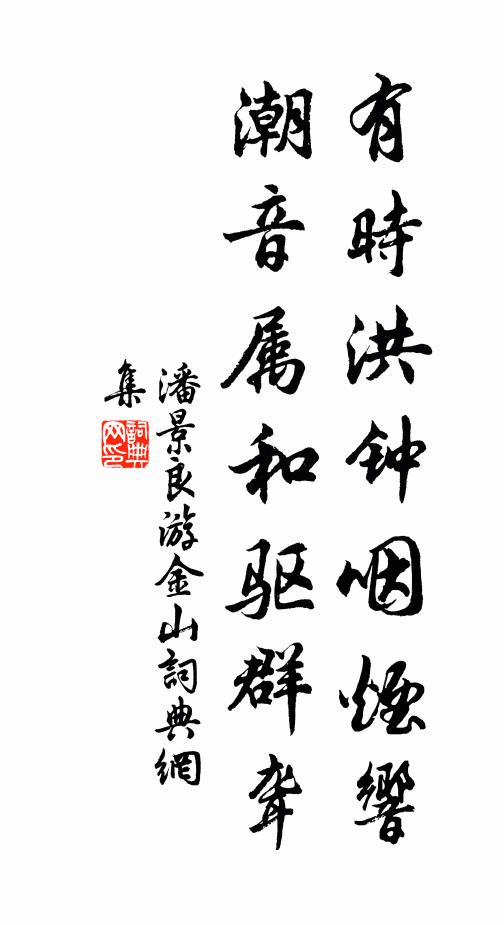 有時洪钟咽煙響
潮音属和驱群聋
潘景良游金山詞典網
集
詞典网印